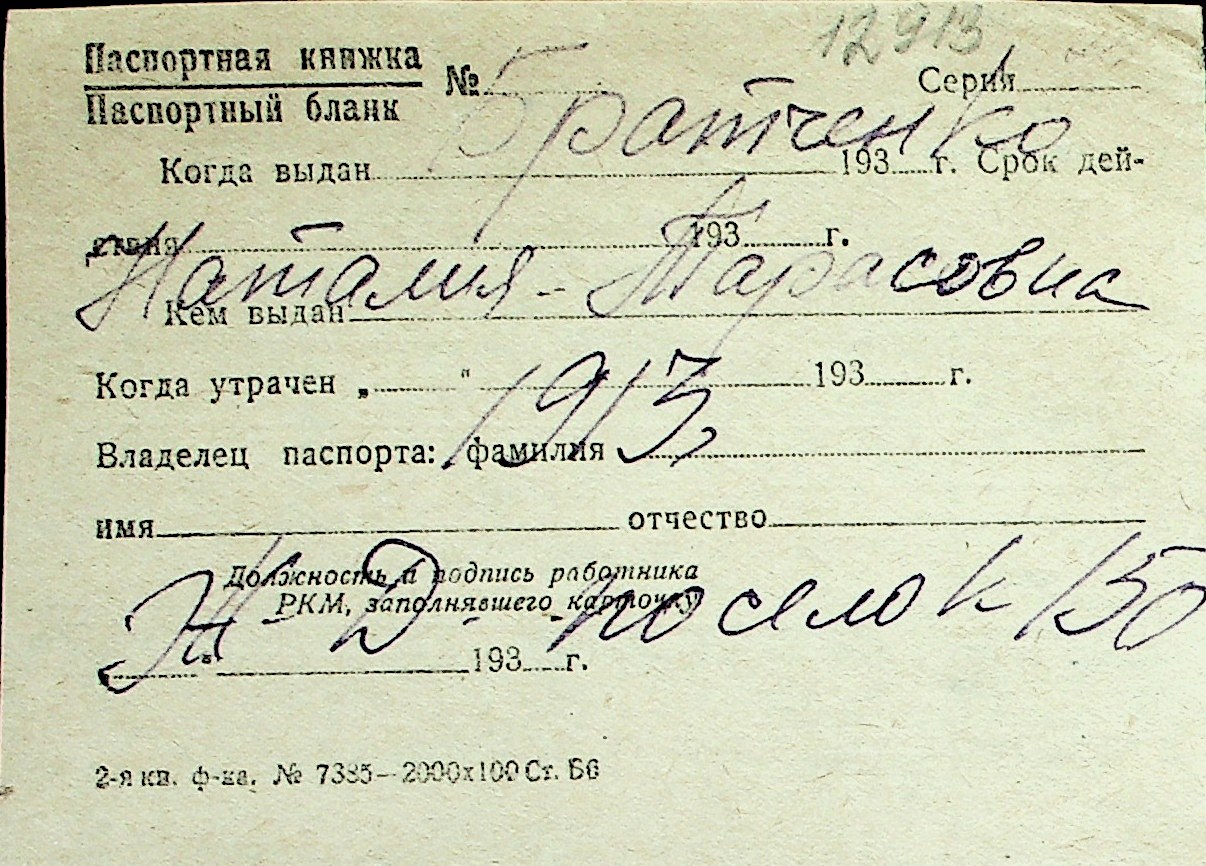 12913
Паспортная книжка
Паспортный бланк
№ Серия
Братченко
Когда выдан 193 г. Срок дей-
ствия 193 г.
Наталия - Тарасовна
Кем выдан
Когда утрачен „ “ 193 г.
1913
Владелец паспорта: фамилия
имя отчество
Должность и подпись работника
РКМ, заполнявшего карточку
Ж-Д. - поселок 150
„ “ 193 г.
2-я кн. ф-ка. № 7385—2000х100 Ст. Б6